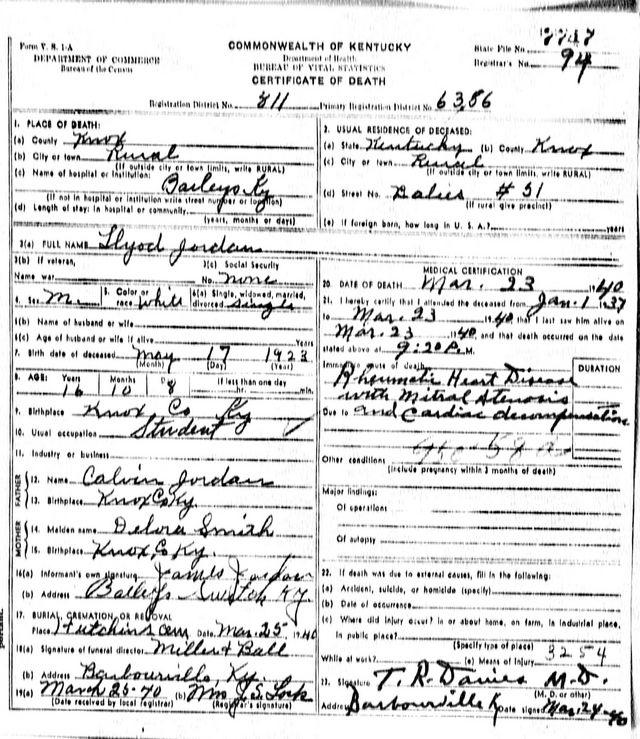 Form V. S. 1-A
DEPARTMENT OF COMMERCE
Bureau of the Census
COMMONWEALTH OF KENTUCKY
Department of Health
BUREAU OF VITAL STATISTICS
CERTIFICATE OF DEATH
State File No. 7747
Registrar's No. 94
Registration District No. 811 Primary Registration District No. 6356
1. PLACE OF DEATH:
(a) County Knox
(b) City or town Rural
(If outside city or town limits, write RURAL)
(c) Name of hospital or institution:
Baileys Ky
(If not in hospital or institution write street number or location)
(d) Length of stay: In hospital or community
(years, months or days)
2. USUAL RESIDENCE OF DECEASED:
(a) State Kentucky (b) County Knox
(c) City or town Rural
(If outside city or town limits, write RURAL)
(d) Street No. # 31
(If rural give precinct)
(e) If foreign born, how long in U. S. A.? years
3(a) FULL NAME Llyod Jordan
3(b) If veteran,
Name war
3(c) Social Security
No. none
4. Sex M. 5. Color or race white 6(a) Single, widowed, married, divorced single
6(b) Name of husband or wife
6(c) Age of husband or wife if alive Years
7. Birth date of deceased May 17 1923
(Month) (Day) (Year)
8. AGE: Years Months Days If less than one day
16 10 hr. min.
9. Birthplace Knox Co Ky
10. Usual occupation Student
11. Industry or business
FATHER
12. Name Calvin Jordan
13. Birthplace Knox Co Ky.
MOTHER
14. Maiden name Delora Smith
15. Birthplace Knox Co Ky.
16(a) Informant's own signature James Jordan
(b) Address Baileys Switch Ky.
17. BURIAL, CREMATION, OR REMOVAL
Place Hutchins Cem Date Mar. 25, 1940
18(a) Signature of funeral director Miller & Ball
(b) Address Barbourville, Ky.
19(a) March 25-40 (b) Mrs J. S. Lock
(Date received by local registrar) (Registrar's signature)
MEDICAL CERTIFICATION
20. DATE OF DEATH Mar. 23 1940
21. I hereby certify that I attended the deceased from Jan. 1 '37
to Mar. 23 1940, that I last saw him alive on
Mar. 23 1940, and that death occurred on the date
stated above at 9:20 P. M.
Immediate cause of death
DURATION
Rheumatic Heart Disease
with Mitral Stenosis
Due to and Cardiac decompensation
Other conditions
(include pregnancy within 3 months of death)
Major findings:
Of operations
Of autopsy
22. If death was due to external causes, fill in the following:
(a) Accident, suicide, or homicide (specify)
(b) Date of occurrence
(c) Where did injury occur? in or about home, on farm, in industrial place,
in public place?
(Specify type of place)
While at work? (e) Means of Injury 3254
23. Signature T. R. Davies M. D.
(M. D. or other)
Address Barbourville K Date signed Mar. 24-40